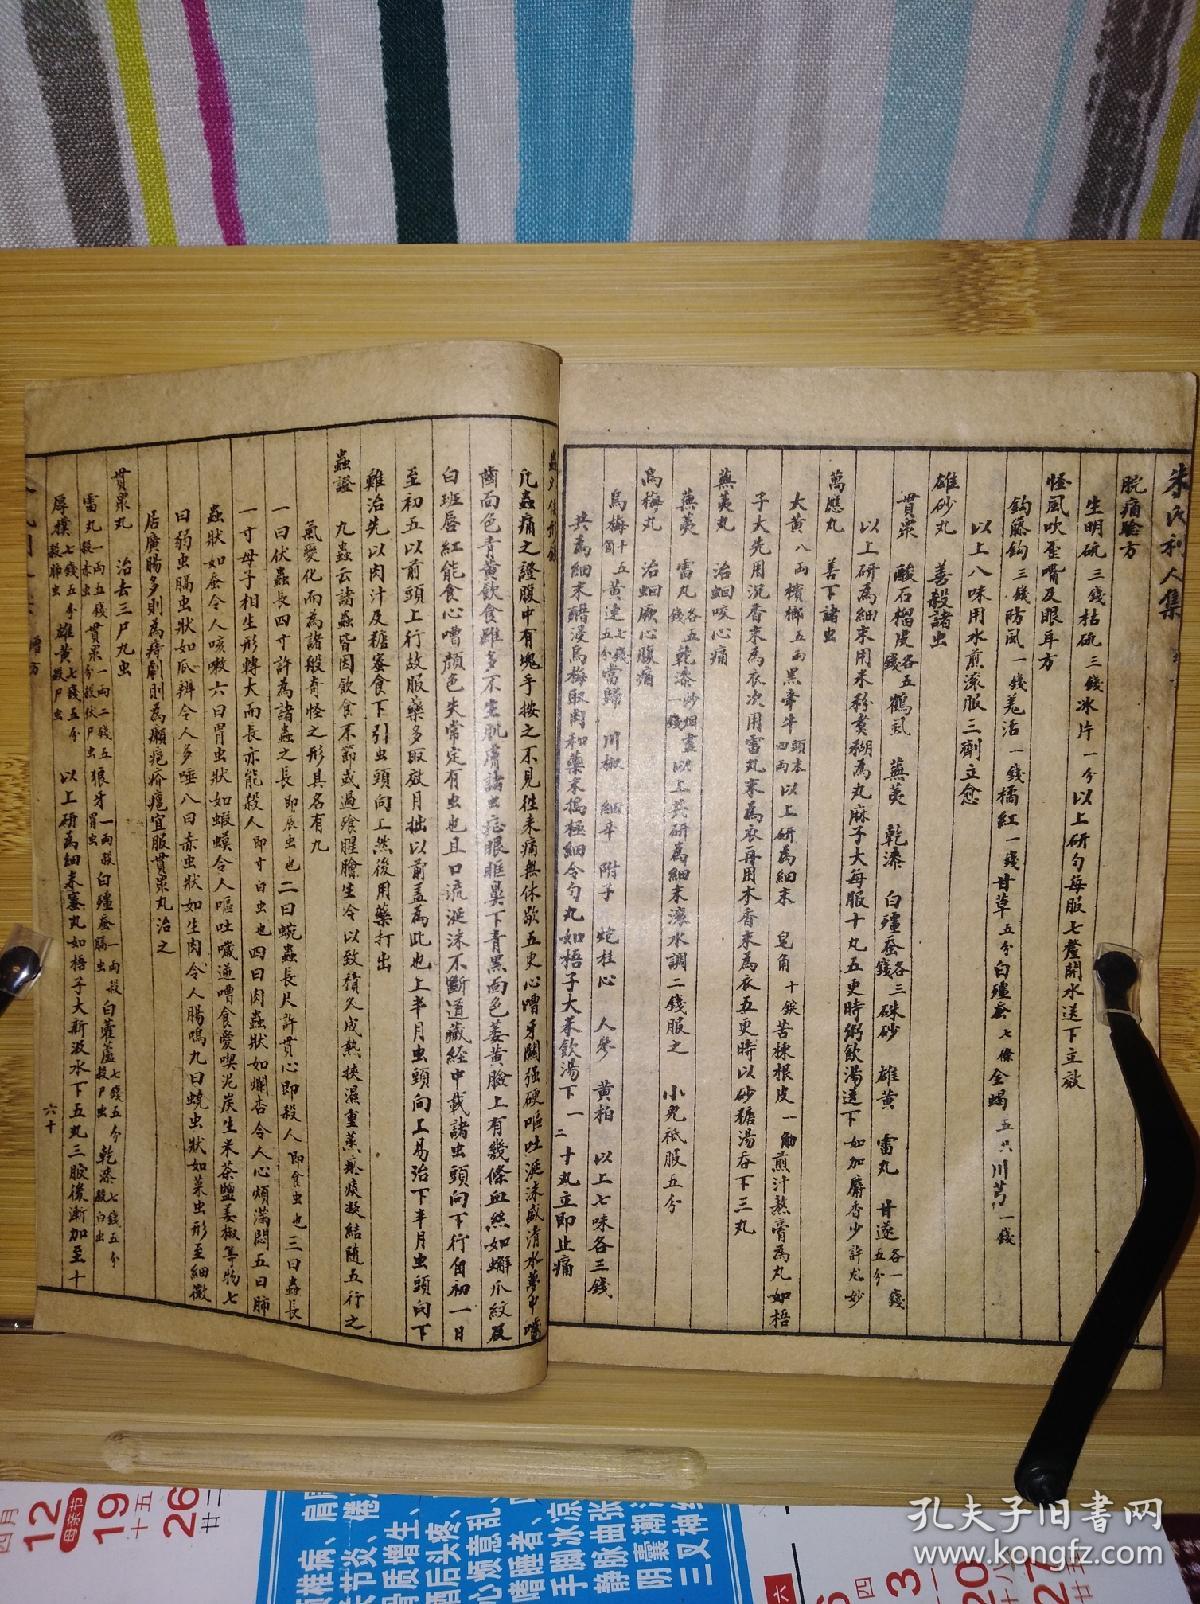 朱氏和人集
脘痛验方
生明硫三錢枯硫三錢冰片一分以上研勻每服七釐開水送下立效
怪風吹歪嘴及眼耳方
鈎藤鈎三錢防風一錢羌活一錢橘紅一錢甘草五分白殭蚕七條金蝎五只川芎一錢
以上八味用水煎滚服三劑立愈
雄砂丸 善殺諸虫
貫眾 酸石榴皮各五錢 鶴虱 蕪荑 乾漆 白殭蚕各三錢 硃砂 雄黄 雷丸 甘遂各一錢五分
以上研為細末用米粉煮糊為丸麻子大每服十丸五更時粥飲湯送下如加麝香少許尤妙
萬應丸 善下諸虫
大黄八両檳榔五両黑牽牛頭末四両以上研為細末 皂角十鋌苦楝根皮一觔煎汁熬膏為丸如梧
子大先用沉香末為衣次用雷丸末為衣再用木香末為衣五更時以砂糖湯吞下三丸
蕪荑丸 治蛔咬心痛
蕪荑 雷丸各五錢乾漆炒烟盡一錢以上共研為細末滚水調二錢服之 小児祗服五分
烏梅丸 治蛔厥心腹痛
烏梅十五個黄連七錢五分當歸 川椒 細辛 附子 桂心 人參 黄柏 以上七味各三錢
共為細末醋浸烏梅取肉和藥末搗極細令勻丸如梧子大米飲湯下一二十丸立即止痛
凡蟲痛之證腹中有塊手按之不見往来痛無休歇五更心嘈牙關强硬嘔吐涎沫或清水夢中嚙
齒面色青黄飲食雖多不生肌膚諸虫症眼眶鼻下青黑面色萎黄臉上有幾條血絲如蠏爪紋及
白班唇紅能食心嘈顏色失常定有虫也且口流涎沫不斷道藏経中載諸虫頭向下行自初一日
至初五以前頭上行故服藥多取故月拙以前盖為此也上半月虫頭向上易治下半月虫頭向下
難治先以肉汁及糖蜜食下引虫頭向上然後用藥打出
蟲證 九蟲云諸蟲皆因飲食不節或過飱腥膾生冷以致積久成熱挾濕熏蒸瘀痰凝結隨五行之
氣變化而為諸般奇怪之形其名有九
一曰伏蟲長四寸許為諸蟲之長即辰虫也二曰蚘蟲長尺許貫心即殺人即食虫也三曰蟲長
一寸母子相生形轉大而長亦能殺人即寸白虫也四曰肉蟲狀如爛杏令人心煩滿悶五曰肺
蟲狀如蚕令人咳嗽六曰胃虫狀如蝦蟆令人嘔吐嘁逋嘈食愛喫泥炭生米茶鹽姜椒等物七
曰弱虫膈虫狀如瓜辨令人多唾八曰赤虫狀如生肉令人腸鳴九曰蟯虫狀如菜虫形至細微
居廣腸多則為痔劇則為癩疤疥瘡宜服貫眾丸治之
貫眾丸 治去三尸九虫
雷丸一両五錢殺赤虫貫眾一両二錢五殺伏尸虫狼牙一両殺胃虫白殭蚕一両殺膈虫白藿蘆七錢五分殺尸虫乾漆七錢五分殺白虫
厚撲七錢五分殺肺虫雄黄七錢五分殺尸虫 以上研為細末蜜丸如梧子大新汲水下五丸三服後漸加至十
六十
12
母亲节
19
十五
26
廿二
3
20
27
孔夫子旧书网
www.kongfz.com